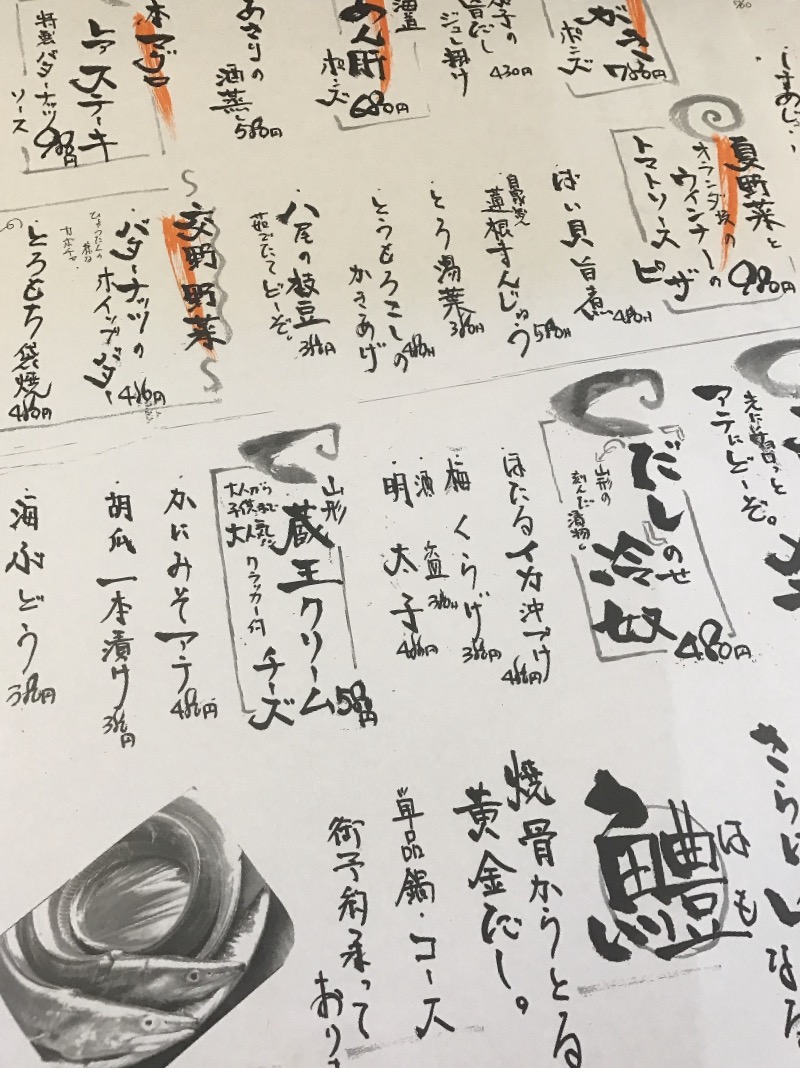 夏野菜と
オランダ産の
ウインナーの
トマトソース
ピザ
980円
ばい貝旨煮
480円
自家製
蓮根まんじゅう
580円
とろ湯葉
380円
とうもろこしの
かきあげ
480円
八尾の枝豆
茹でたてどーぞ。
380円
交野野菜
バターナッツの
ホイップバター
480円
とろもち袋焼
480円
780円
ポン酢
430円
あん肝
ポン酢
680円
あさりの
酒蒸し
580円
本マグロ
レアステーキ
特製バターナッツ
ソース
980円
アテにどーぞ。
だしのせ
冷奴
山形の
刻んだ漬物
480円
ほたるイカ沖づけ
480円
梅くらげ
380円
酒盗
380円
明太子
480円
山形
蔵王クリーム
チーズ
クラッカー付
大人から
子供まで
大人気!!
580円
かにみそアテ
480円
胡瓜一本漬け
380円
海ぶどう
380円
はも
鱧
焼骨からとる
黄金だし。
単品鍋・コース
御予約承って
おりま